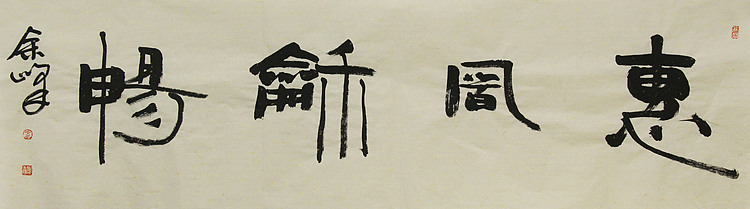 惠風龢暢
余峰